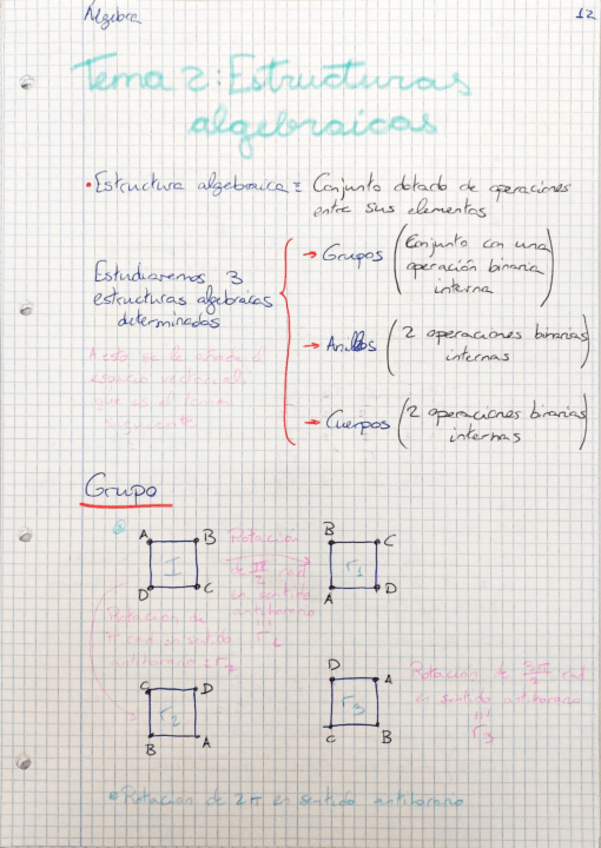 Álgebra
12
Tema 2: Estructuras
algebraicas
• Estructura algebraica = Conjunto dotado de operaciones
entre sus elementos
Estudiaremos 3
estructuras algebraicas
determinadas
→ Grupos (Conjunto con una
operación binaria
interna)
→ Anillos (2 operaciones binarias
internas)
→ Cuerpos (2 operaciones binarias
internas)
A esto se le añade el
espacio vectorial,
que es el tema
siguiente
Grupo
A B
I
D C
Rotación
de π/2 rad
en sentido
antihorario
r1
B C
r1
A D
Rotación de
π rad en sentido
antihorario = r2
C D
r2
B A
D A
r3
C B
Rotación de 3π/2 rad
en sentido antihorario
r3
Rotación de 2π en sentido antihorario